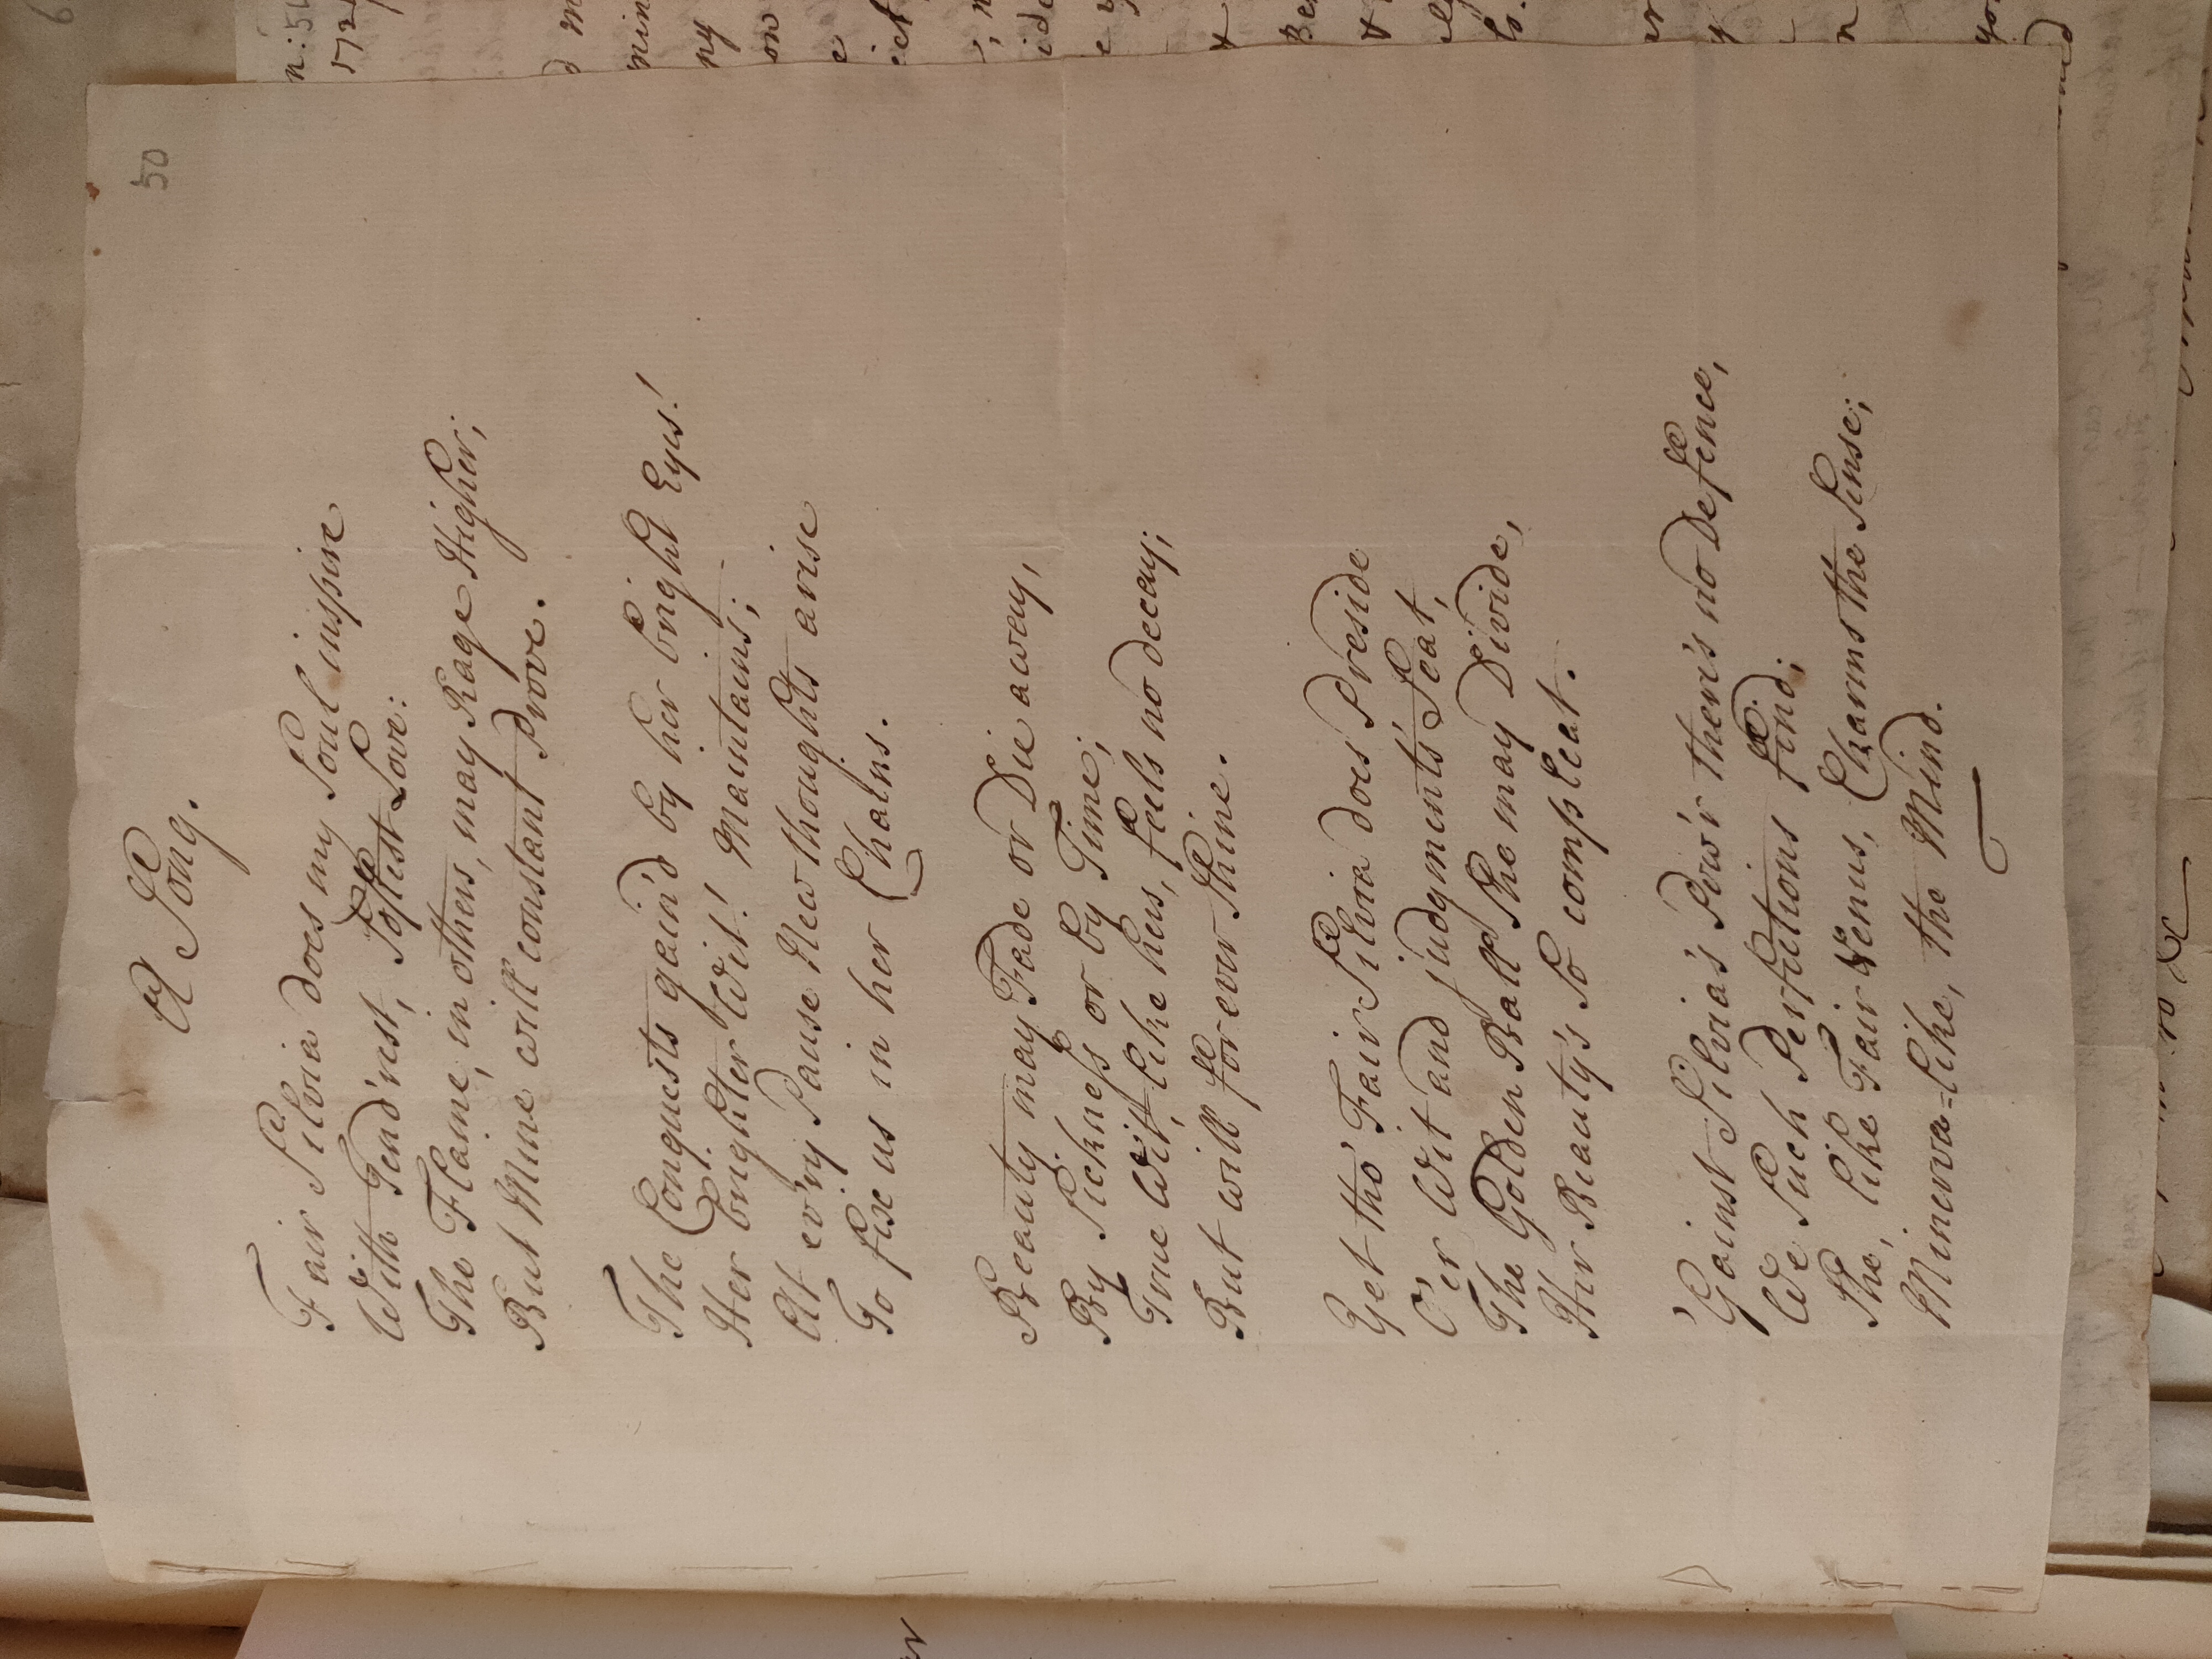 A Song.
50
Fair Silvia does my Soul inspire
With Tend'rest, Softest Love:
The Flame, in others, may Rage Higher;
But Mine will constant Prove.
The Conquests gain'd by her bright Eyes!
Her brighter Wit! Maintains;
At ev'ry Pause New thoughts arise
To fix us in her Chains.
Beauty may Fade or Die away,
By Sickness or by Time;
True Wit, like hers, feels no decay;
But will for ever Shine.
Yet tho' Fair Silvia does Preside
O'er Wit and judgment's Seat,
The Golden Ball She may Divide,
Her Beauty's So compleat.
'Gainst Silvia's Pow'r there's no Defence,
We Such Perfections find;
She, like Fair Venus, Charms the Sense;
Minerva=like, the Mind.